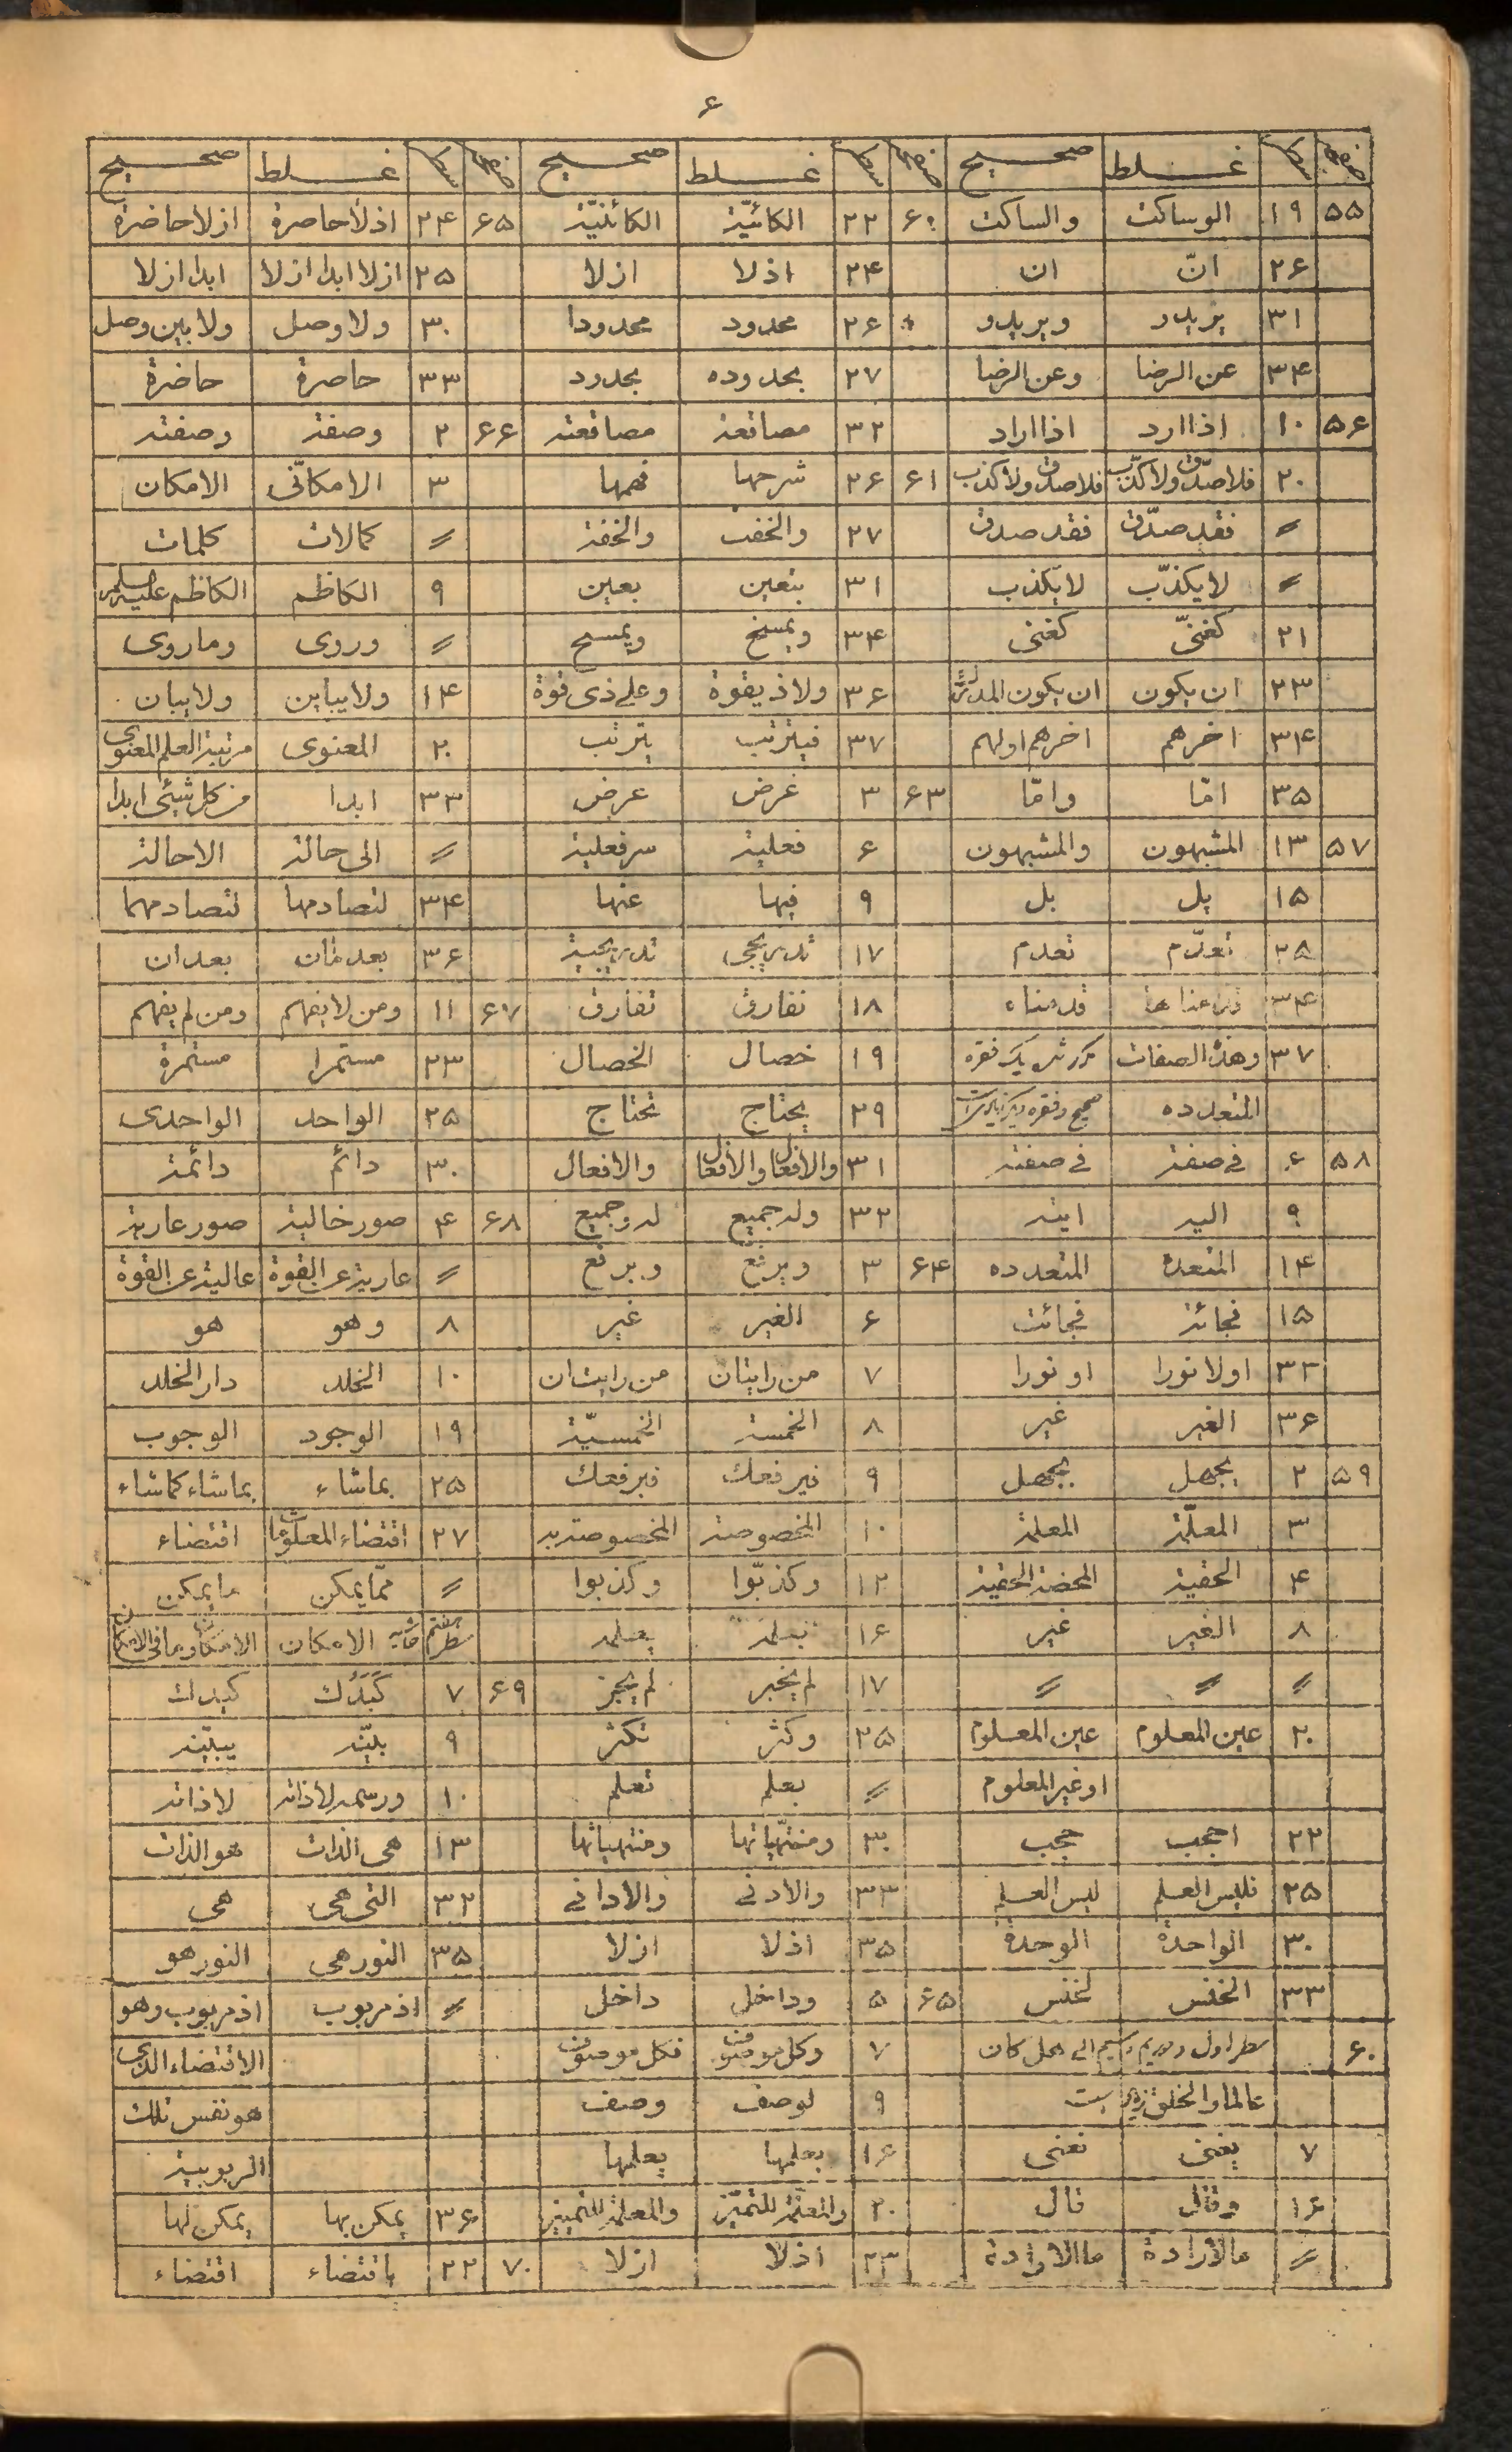 ۶
صفحه سطر غلط صحیح صفحه سطر غلط صحیح صفحه سطر غلط صحیح
۵۵ ۱۹ الوساکت والساکت ۶۰ ۲۲ الکائیّة الکائنیّة ۶۵ ۲۴ اذلاً حاصرة ازلا حاضرة
۲۶ انّ ان ۲۴ اذلا ازلا ۲۵ ازلا ابدا ازلا ابدا ازلا
۳۱ یریدو ویریدو ۲۶ محدود محدودا ۳۰ ولا وصل ولا بین وصل
۳۴ عن الرضا وعن الرضا ۲۷ بحدوده بحدود ۳۳ حاصرة حاضرة
۵۶ ۱۰ اذا ارد اذا اراد ۳۲ مصانعة مصانعته ۶۶ ۲ وصفة وصفته
۲۰ فلا صدّق ولا کذّب فلا صدق ولا کذب ۶۱ ۲۶ شرحها فهمها ۳ الامکانّی الامکان
〃 فقد صدّق فقد صدق ۲۷ والخفت والخفة 〃 کمالات کلمات
〃 لا یکذّب لا یکذب ۳۱ بتعین بعین ۹ الکاظم الکاظم علیه السلم
۲۱ کغنیّ کغنی ۳۴ ویمسخ ویمسح 〃 وروی وما روی
۲۳ ان یکون ان یکون المدرک ۳۶ ولا ذیقوة وعلی ذی قوة ۱۴ ولا یباین ولا یبان
۳۴ اخرهم اخرهم اولهم ۳۷ فیترتب یترتب ۲۰ المعنوی مرتبة العلم المعنوی
۳۵ امّا وامّا ۶۳ ۳ غرض عرض ۳۳ ابدا من کل شیئی ابدا
۵۷ ۱۳ المشبهون والمشبهون ۶ فعلیة سرفعلیة 〃 الی حالة الا حالة
۱۵ یل بل ۹ فیها عنها ۳۴ لتصادمها لتصادمهما
۲۸ تعدّم تعدم ۱۷ تدریجی تدریجیة ۳۶ بعد فان بعد ان
۳۴ قدمناها قدمناه ۱۸ نفارق تفارق ۶۷ ۱۱ ومن لا یفهم ومن لم یفهم
۳۷ وهذه الصفات مکرر شد یک فقره ۱۹ خصال الخصال ۲۳ مستمرا مستمرة
المتعدده صحیح وفقره دیگر زیاد است ۲۹ یحتاج تحتاج ۲۵ الواحد الواحدی
۵۸ ۶ فی صفة فی صفته ۳۱ والافعال والافعال والافعال ۳۰ دائم دائمة
۹ الیه ایته ۳۲ وله جمیع له وجمیع ۶۸ ۴ صور خالیة صور عاریة
۱۴ المتعدة المتعدده ۶۴ ۳ ویرتع ویرفع 〃 عاریة عن القوة عالیة عن القوة
۱۵ فجائة فجائت ۶ الغیر غیر ۸ وهو هو
۳۲ اولا نورا او نورا ۷ من رایتان من رایت ان ۱۰ الخلد دار الخلد
۳۶ الغیر غیر ۸ الخمسة الخمسیّة ۱۹ الوجود الوجوب
۵۹ ۲ یجهل بجهل ۹ نیرفعک فیرفعک ۲۵ بما شاء بما شاء کما شاء
۳ المعلّمة المعلمة ۱۰ المخصوصة المخصوصة به ۲۷ اقتضاء المعلومات اقتضاء
۴ الحقیة المحضة الحقیة ۱۲ وکذّبوا وکذبوا 〃 ممّا یمکن ما یمکن
۸ الغیر غیر ۱۶ بعلمه یعلمه سطر هفتم حاشیه الامکان الامکان وما فی الامکان
〃 〃 〃 ۱۷ لم یخبر لم یجز ۶۹ ۷ کَیَدَک کیدک
۲۰ عین المعلوم عین المعلوم ۲۵ وکثر تکثر ۹ بلیّنه یبیّنه
او غیر المعلوم 〃 بعلم تعلم ۱۰ ورسمه لا ذاته لا ذاته
۲۲ احجب حجب ۳۰ ومنتهّیاتها ومنتهیاتها ۱۳ هی الذات هو الذات
۲۵ فلیس العلم لیس العلم ۳۳ والادنی والادانی ۳۲ التی هی هی
۳۰ الواحدة الوحدة ۳۵ اذلا ازلا ۳۵ النور هی النور هو
۳۳ الخنس لخنس ۶۵ ۵ وداخل داخل 〃 اذ مربوب اذ مربوب وهو
۶۰ سطر اول ودویم وسیم الی محل کان ۷ وکل موصوف فکل موصوف الاقتضاء الذی
عالما والخلق زیاد است ۹ لوصف وصف هو نفس تلک
۷ یغنی تغنی ۱۶ بعلمها یعلمها الربوبیة
۱۶ وقال قال ۲۰ والمعلّمة للتمیّز والمعلمة للتمییز ۳۶ یمکن بها یمکن لها
〃 مالارادة ما الارادة ۲۳ اذلا ازلا ۷۰ ۲۲ باقتضاء اقتضاء